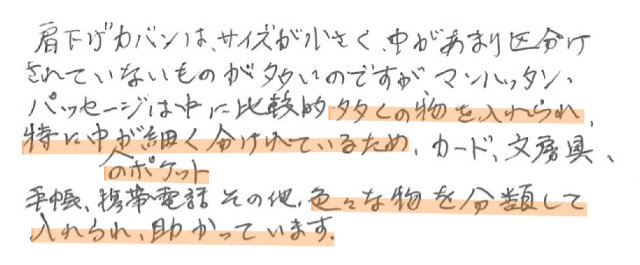 肩下げカバンは、サイズが小さく、中があまり区分け
されていないものが多いのですがマンハッタン・
パッセージは中に比較的多くの物を入れられ、
特に中が細く分けれているため、カード、文房具、
のポケット
手帳、携帯電話その他、色々な物を分類して
入れられ、助かっています。